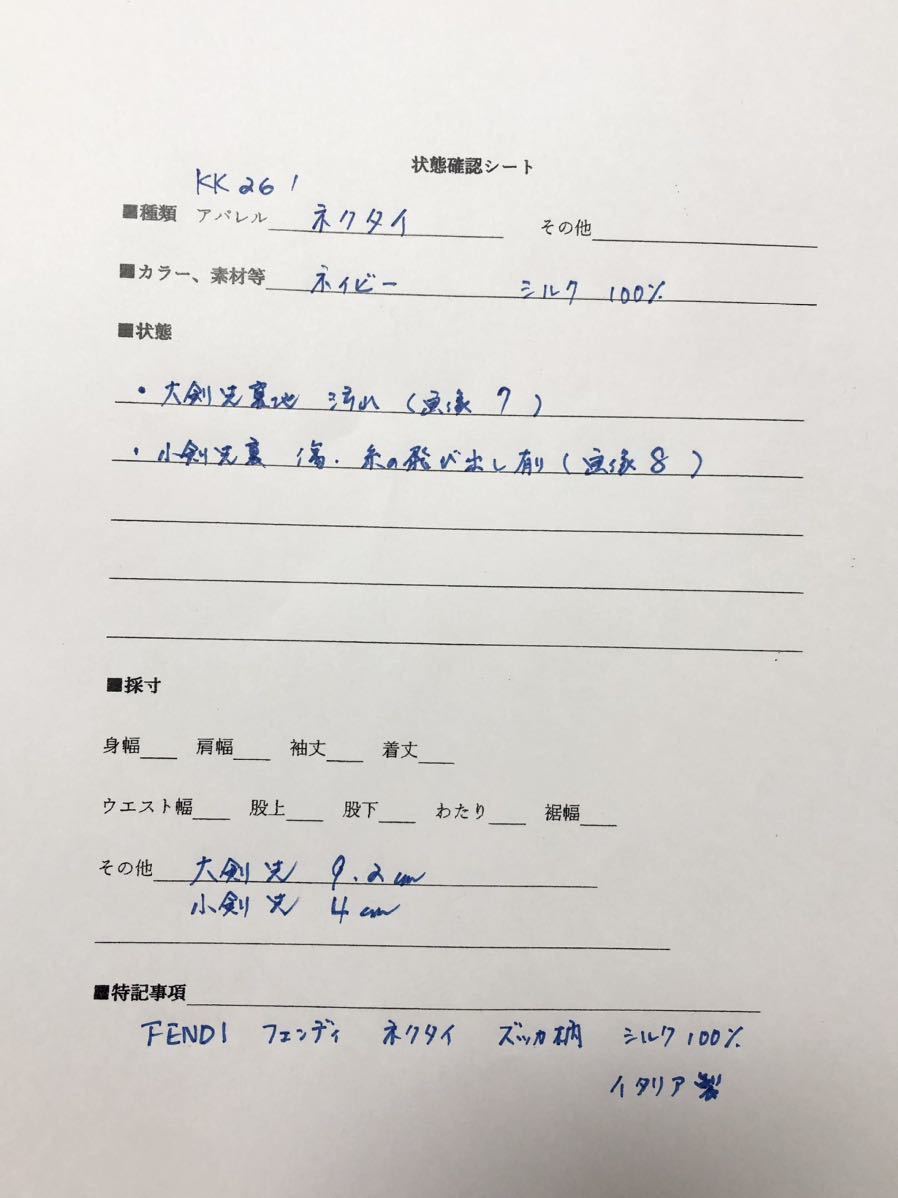 状態確認シート
KK261
■種類 アパレル ネクタイ その他
■カラー、素材等 ネイビー シルク 100%
■状態
・大剣先裏地 汚れ (画像 7)
・小剣先裏 傷・糸の飛び出し有 (画像 8)
■採寸
身幅 肩幅 袖丈 着丈
ウエスト幅 股上 股下 わたり 裾幅
その他 大剣先 9.2cm
小剣先 4cm
■特記事項
FENDI フェンディ ネクタイ ズッカ柄 シルク100%
イタリア製